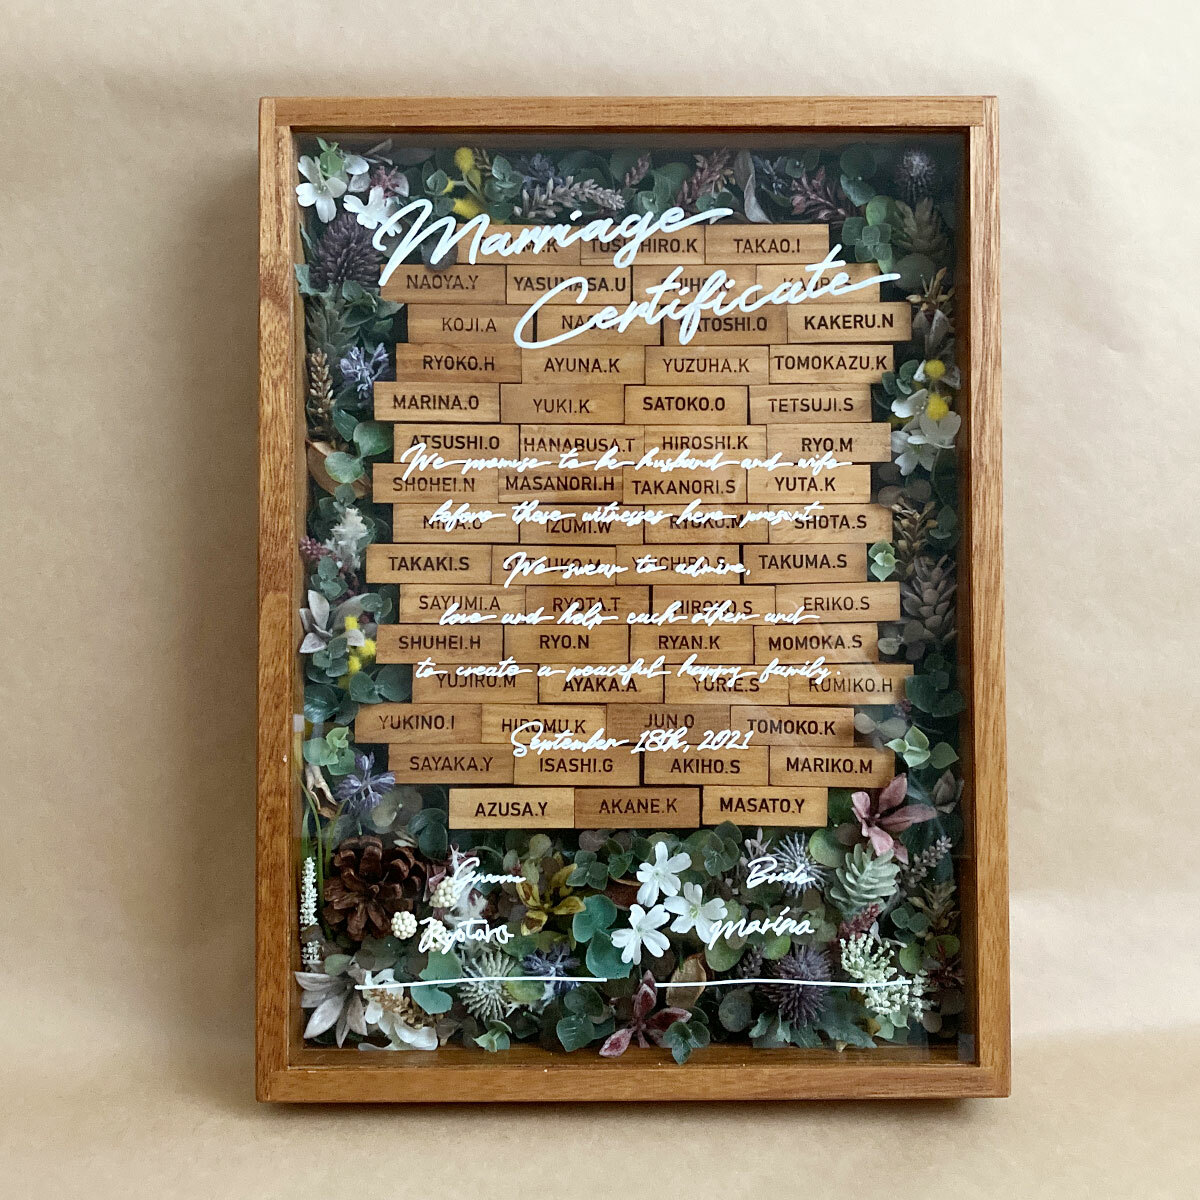 Marriage
TOSHIHIRO.K TAKAO.I
Certificate
NAOYA.Y YASUMASA.U
KOJI.A KAKERU.N
RYOKO.H AYUNA.K YUZUHA.K TOMOKAZU.K
MARINA.O YUKI.K SATOKO.O TETSUJI.S
ATSUSHI.O HANABUSA.T HIROSHI.K RYO.M
We promise to be husband and wife
SHOHEI.N MASANORI.H TAKANORI.S YUTA.K
before these witnesses here present
IZUMI.W RYOKO.M SHOTA.S
TAKAKI.S TAKUMA.S
We swear to admire,
SAYUMI.A RYOTA.T ERIKO.S
love and help each other and
SHUHEI.H RYO.N RYAN.K MOMOKA.S
to create a peaceful happy family.
YUJIRO.M AYAKA.A YURIE.S RUMIKO.H
YUKINO.I HIROMU.K JUN.O TOMOKO.K
September 18th, 2021
SAYAKA.Y ISASHI.G AKIHO.S MARIKO.M
AZUSA.Y AKANE.K MASATO.Y
Groom Bride
Ryotaro Marina